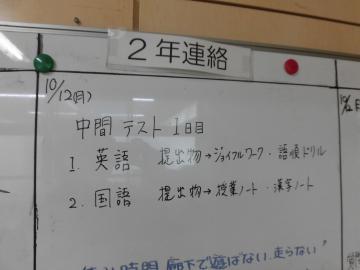 2年連絡
10/12(月)
中間テスト 1日目
1. 英語 提出物→ジョイフルワーク・語順ドリル
2. 国語 提出物→授業ノート・漢字ノート
時間 廊下で遊ばない.走らない”